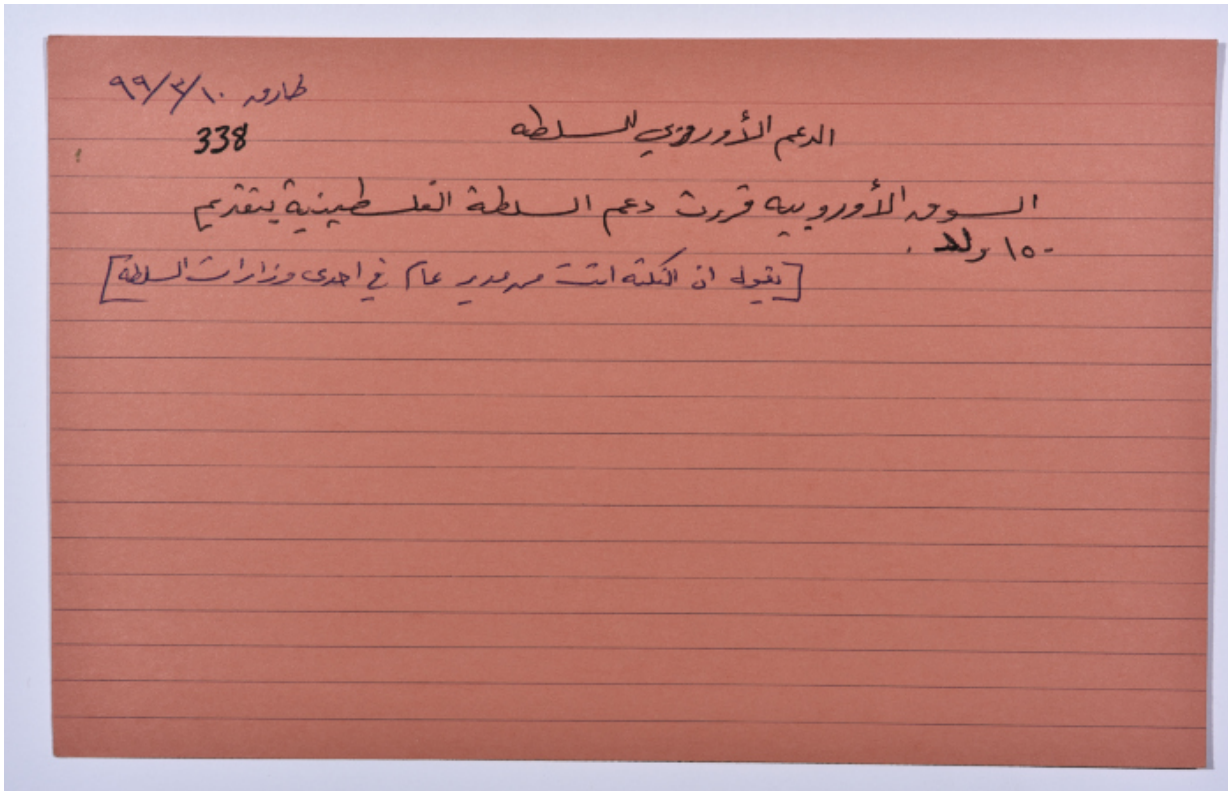 طارق ٩٩/٣/١٠
338
الدعم الأوروبي للسلطه
السوق الأوروبيه قررت دعم السلطة الفلسطينية بتقديم
١٥٠ ولد .
[يقول ان النكته اتت من مدير عام في احدى وزارات السلطة]